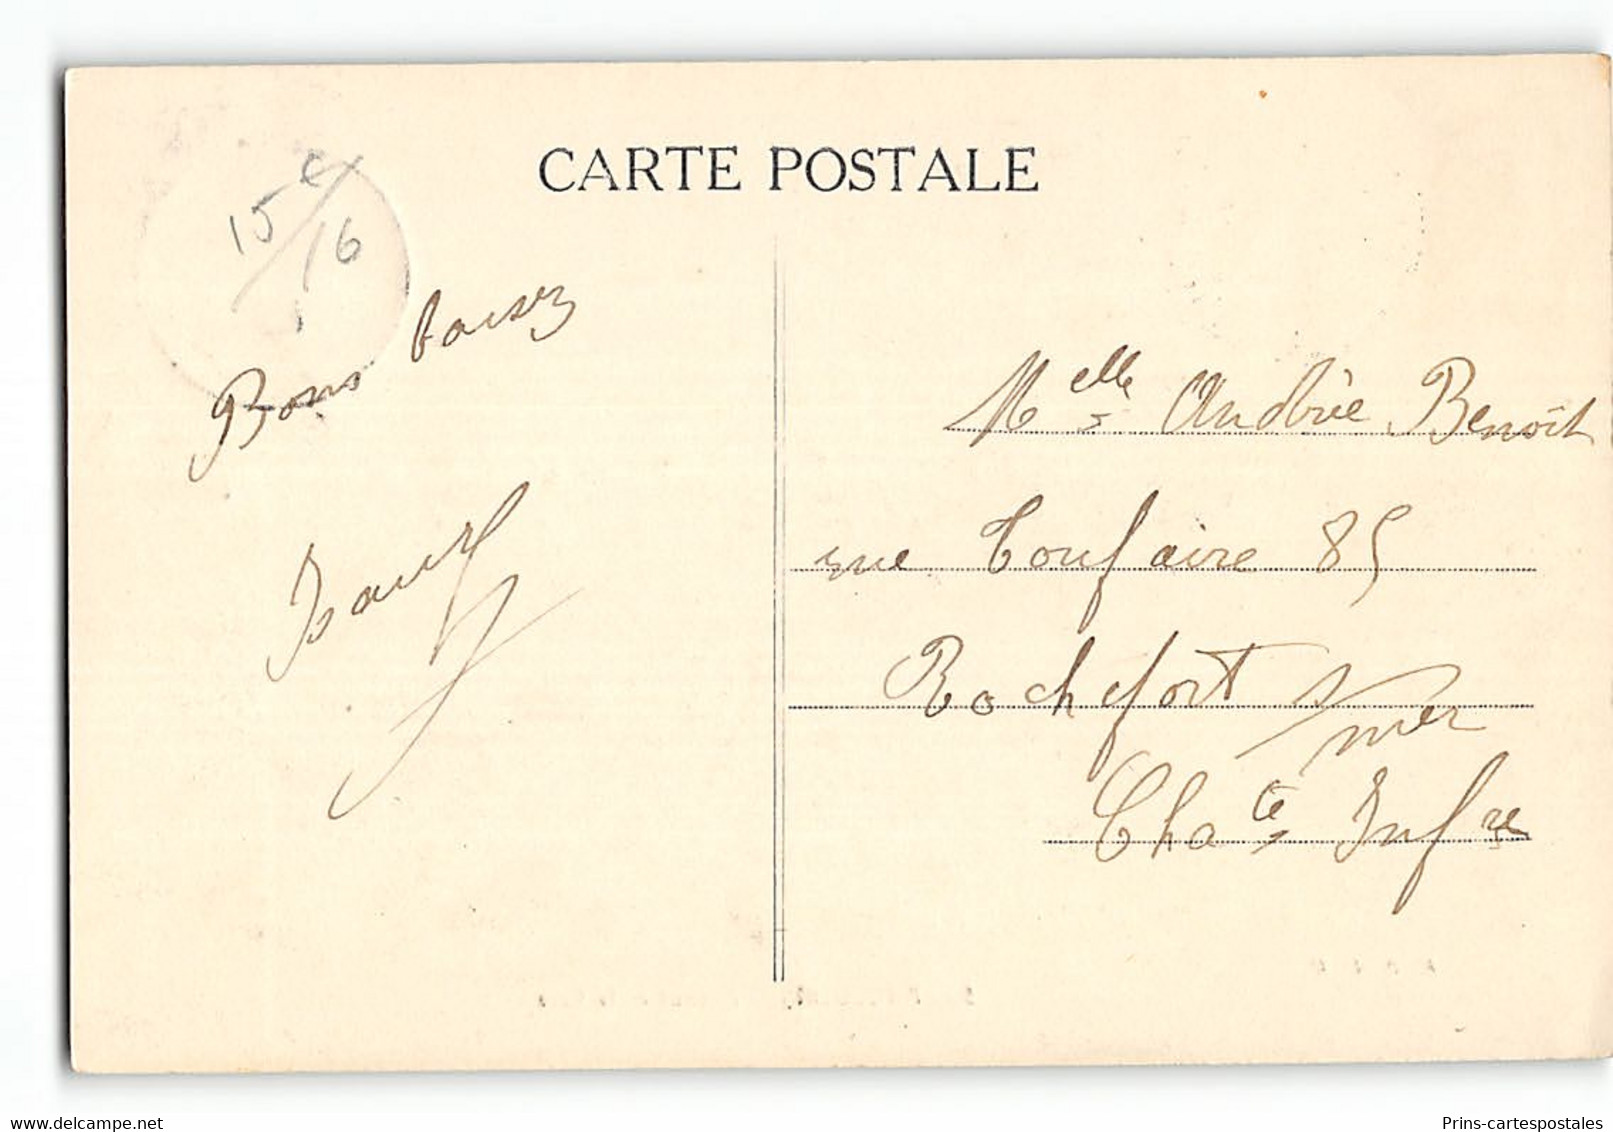 CARTE POSTALE
15/16
Bons baisez
Melle Andrée Benoit
rue Toufaire 85
Rochefort s/mer
Chate Infre
delcampe.net
Prins-cartespostales